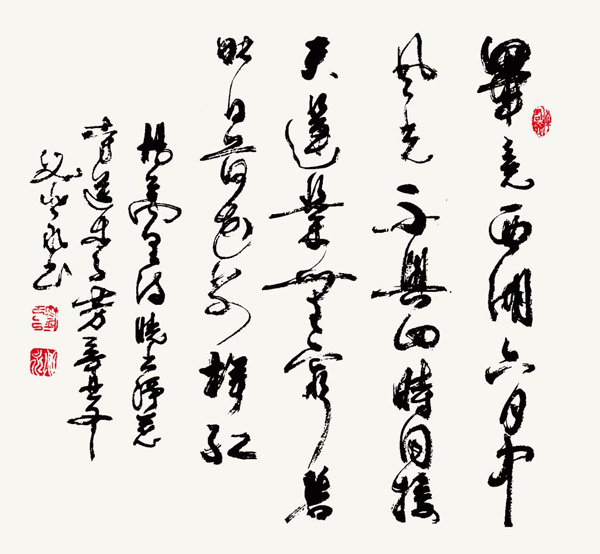 畢竟西湖六月中
風光不與四時同接
天蓮葉無窮碧
映日荷花別樣紅
楊萬里詩曉出淨慈
寺送林子方